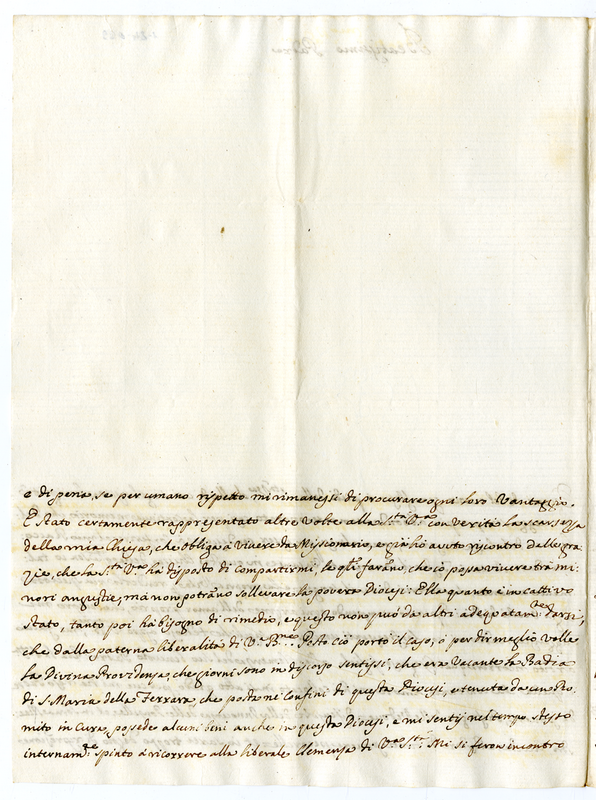 e di pena, se per umano rispetto mi rimanessi di procurare ogni loro Vantaggio.
È stato certamente rappresentato altre volte alla S.tà V.ra con verità la scarsezza
della mia Chiesa, che obliga à vivere da Missionario, e già hò avuto riscontro delle gra-
zie, che la S.tà V.ra hà disposto di compartirmi, le q.li farãno, che io possa vivere trà mi-
nori angustie, mà non potrãno sollevare la povera Diocesi: Ella quanto è in cattivo
stato, tanto poi hà bisogno di rimedio, e questo non può da altri adequatam.te darsi,
che dalla paterna liberalità di V.ra B.ne Posto ciò portò il caso, ò per dir meglio volle
la Divina Providenza, che giorni sono in discorso sentissi, che era Vacante la Badia
di S. Maria della Ferrara, che posta ne' Confini di questa Diocesi, e tenuta da un Ro-
mito in Cura, possede alcuni beni anche in questa Diocesi, e mi sentij nel tempo stesso
internam.te spinto à ricorrere alla liberale Clemenza di V.ra S.tà Mi si ferono incontro